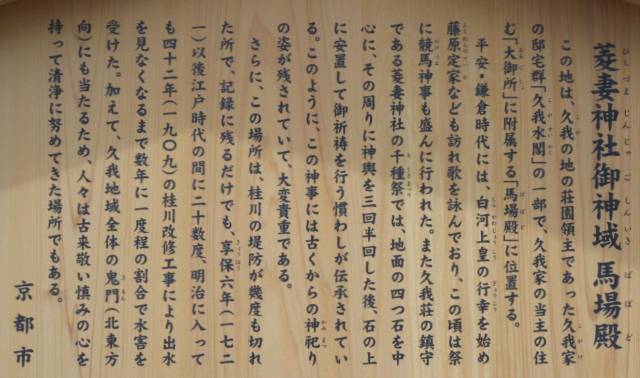 菱妻神社御神域 馬場殿
この地は、久我の地の荘園領主であった久我家
の邸宅群「久我水閣」の一部で、久我家の当主の住
む「大御所」に附属する「馬場殿」に位置する。
平安・鎌倉時代には、白河上皇の行幸を始め
藤原定家なども訪れ歌を詠んでおり、この頃は祭
に競馬神事も盛んに行われた。また久我荘の鎮守
である菱妻神社の千種祭では、地面の四つ石を中
心に、その周りに神輿を三回半回した後、石の上
に安置して御祈祷を行う慣わしが伝承されてい
る。このように、この神事には古くからの神祀り
の姿が残されていて、大変貴重である。
さらに、この場所は、桂川の堤防が幾度も切れ
た所で、記録に残るだけでも、享保六年(一七二
一)以後江戸時代の間に二十数度、明治に入って
も四十二年(一九〇九)の桂川改修工事により出水
を見なくなるまで数年に一度程の割合で水害を
受けた。加えて、久我地域全体の鬼門(北東方
向)にも当たるため、人々は古来敬い慎みの心を
持って清浄に努めてきた場所でもある。
京都市